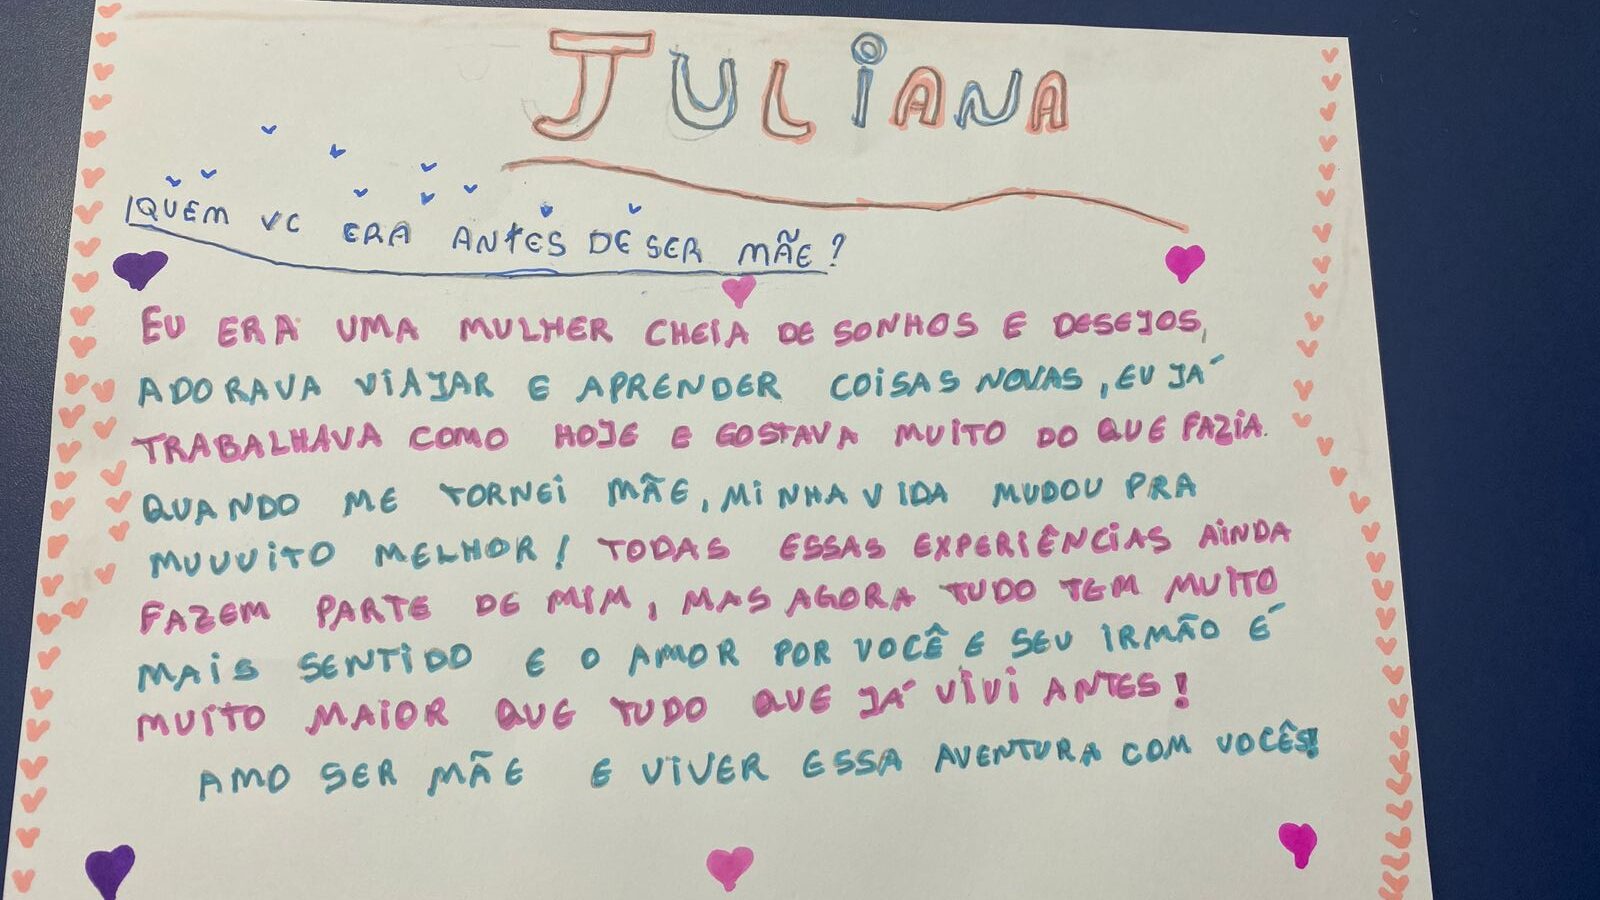 JULIANA
QUEM VC ERA ANTES DE SER MÃE?
EU ERA UMA MULHER CHEIA DE SONHOS E DESEJOS,
ADORAVA VIAJAR E APRENDER COISAS NOVAS, EU JÁ
TRABALHAVA COMO HOJE E GOSTAVA MUITO DO QUE FAZIA.
QUANDO ME TORNEI MÃE, MINHA VIDA MUDOU PRA
MUUUITO MELHOR! TODAS ESSAS EXPERIÊNCIAS AINDA
FAZEM PARTE DE MIM, MAS AGORA TUDO TEM MUITO
MAIS SENTIDO E O AMOR POR VOCÊ E SEU IRMÃO É
MUITO MAIOR QUE TUDO QUE JÁ VIVI ANTES!
AMO SER MÃE E VIVER ESSA AVENTURA COM VOCÊS!